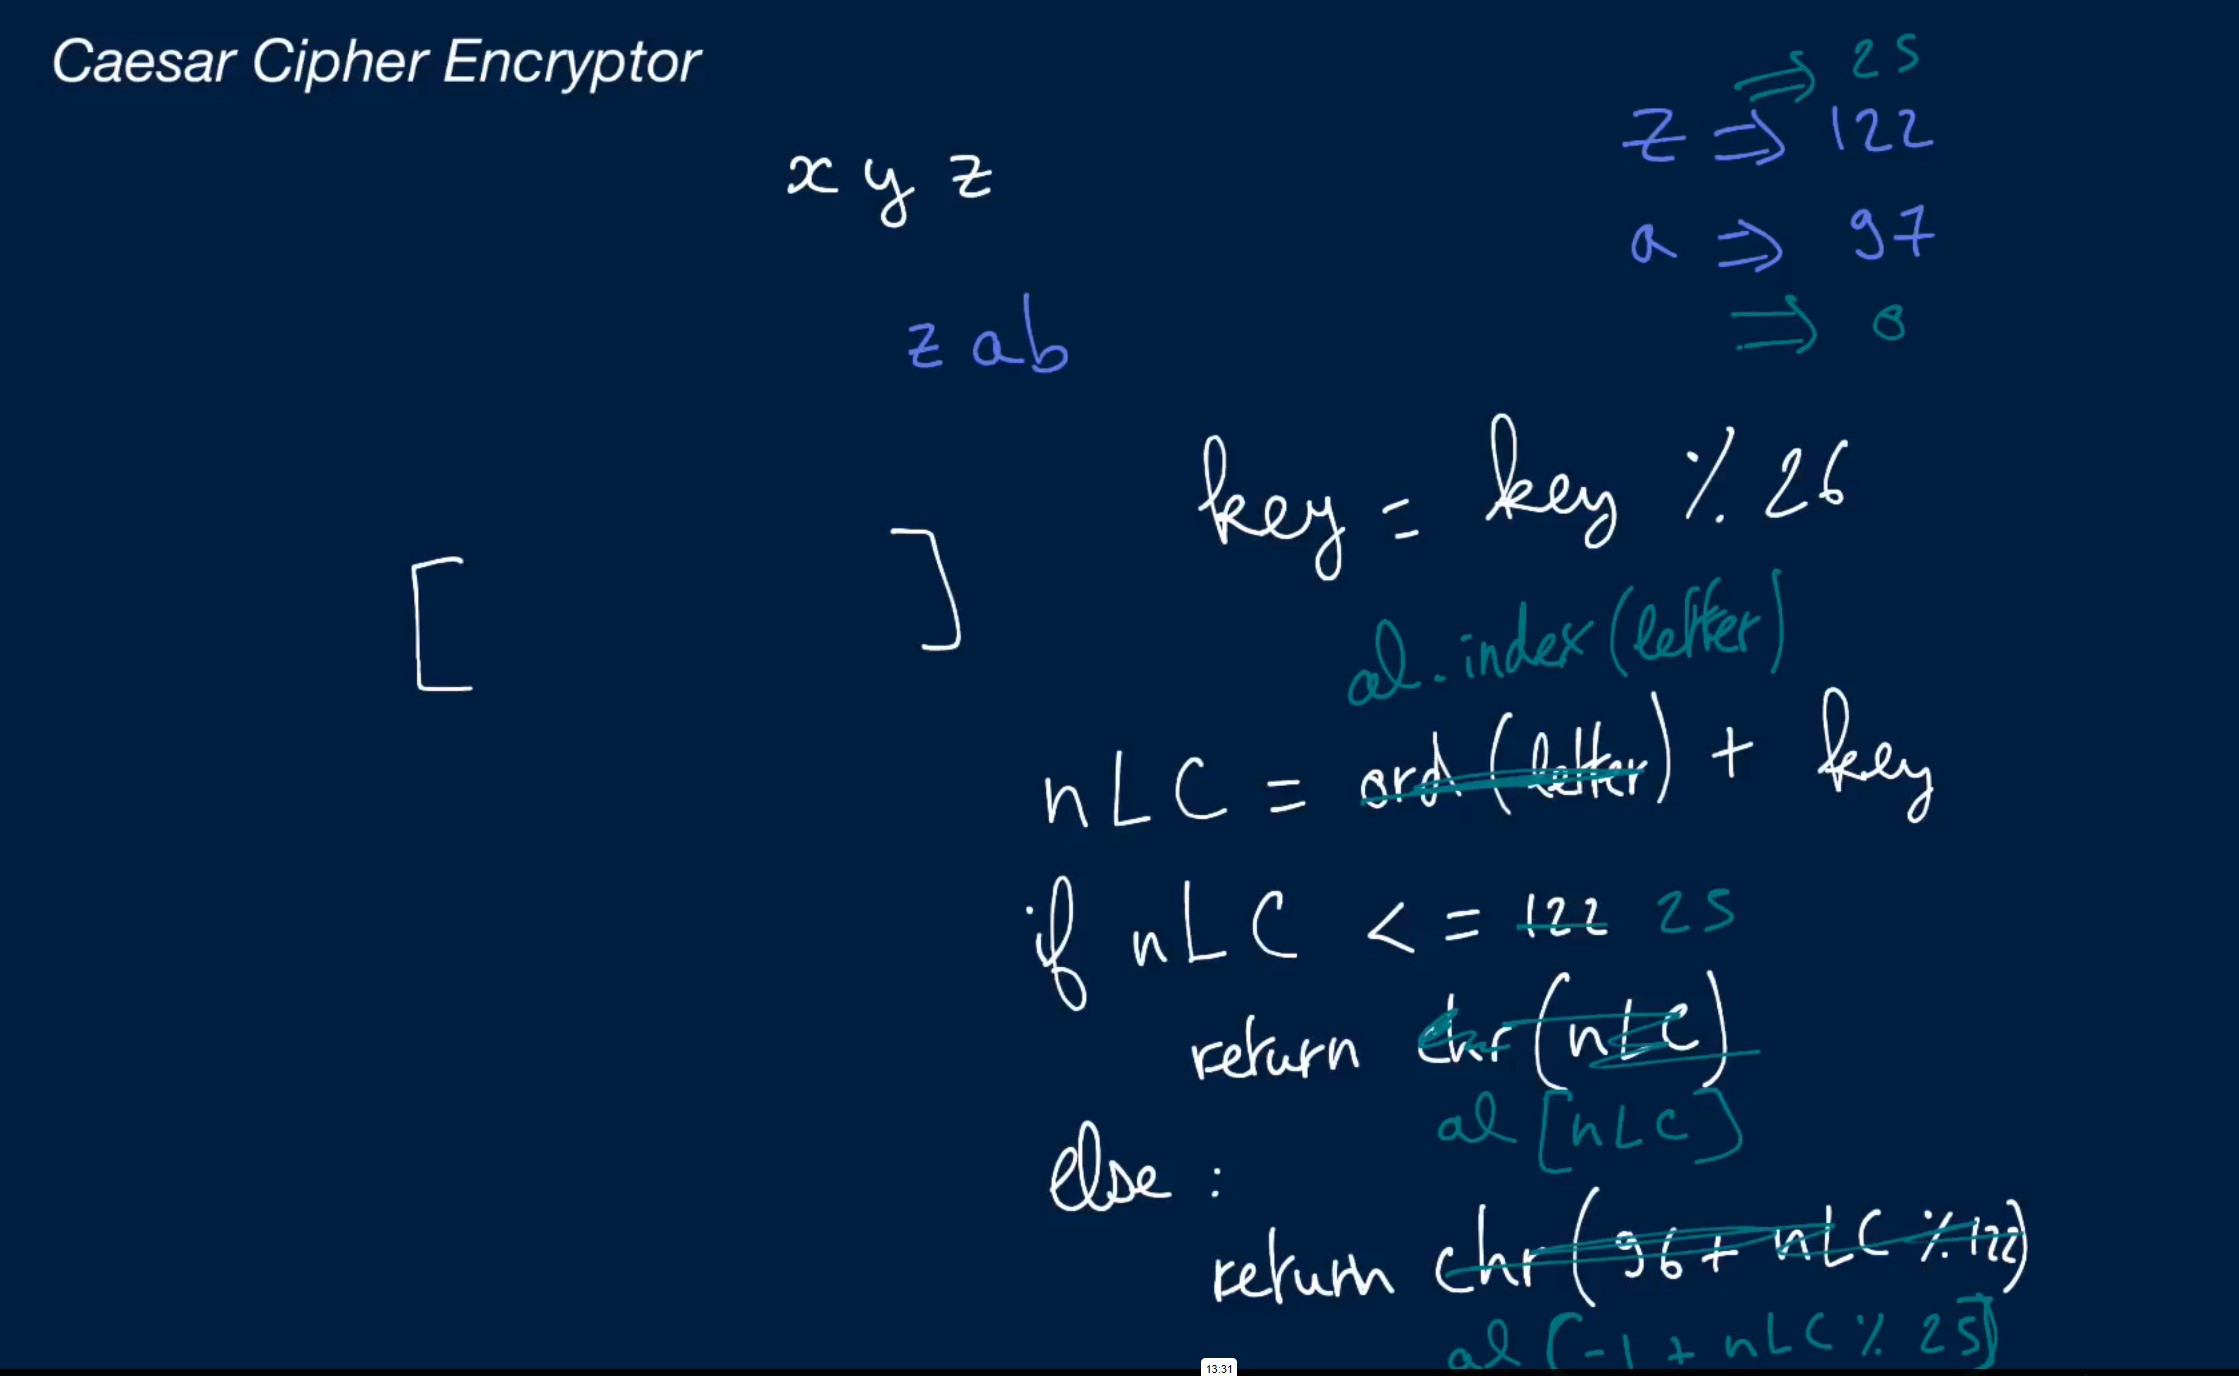 Caesar Cipher Encryptor
⇒ 25
z ⇒ 122
x y z
a ⇒ 97
⇒ 0
z ab
key = key % 26
[ ]
al.index(letter)
nLC = ord(letter) + key
if nLC <= 122 25
return chr(nLC)
al[nLC]
else :
return chr(96+ nLC % 122)
al[-1 + nLC % 25]
13:31